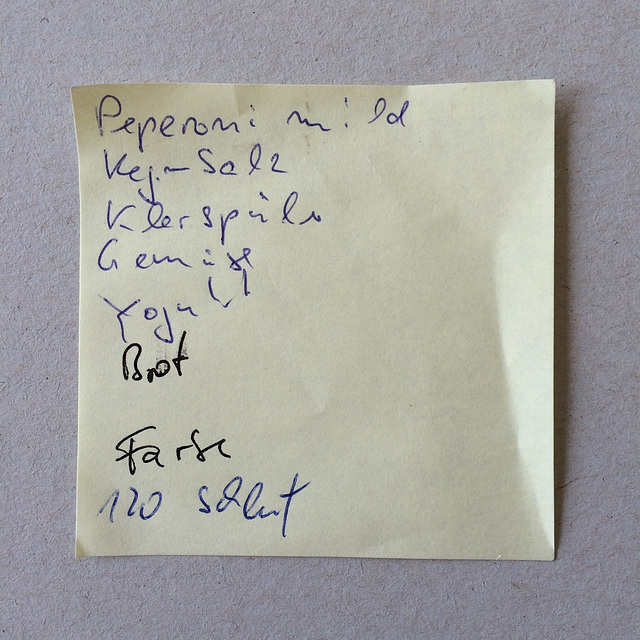 Peperoni mild
Reg-Salz
Klarspüler
Gemüse
Yogurt
Brot
Farbe
120